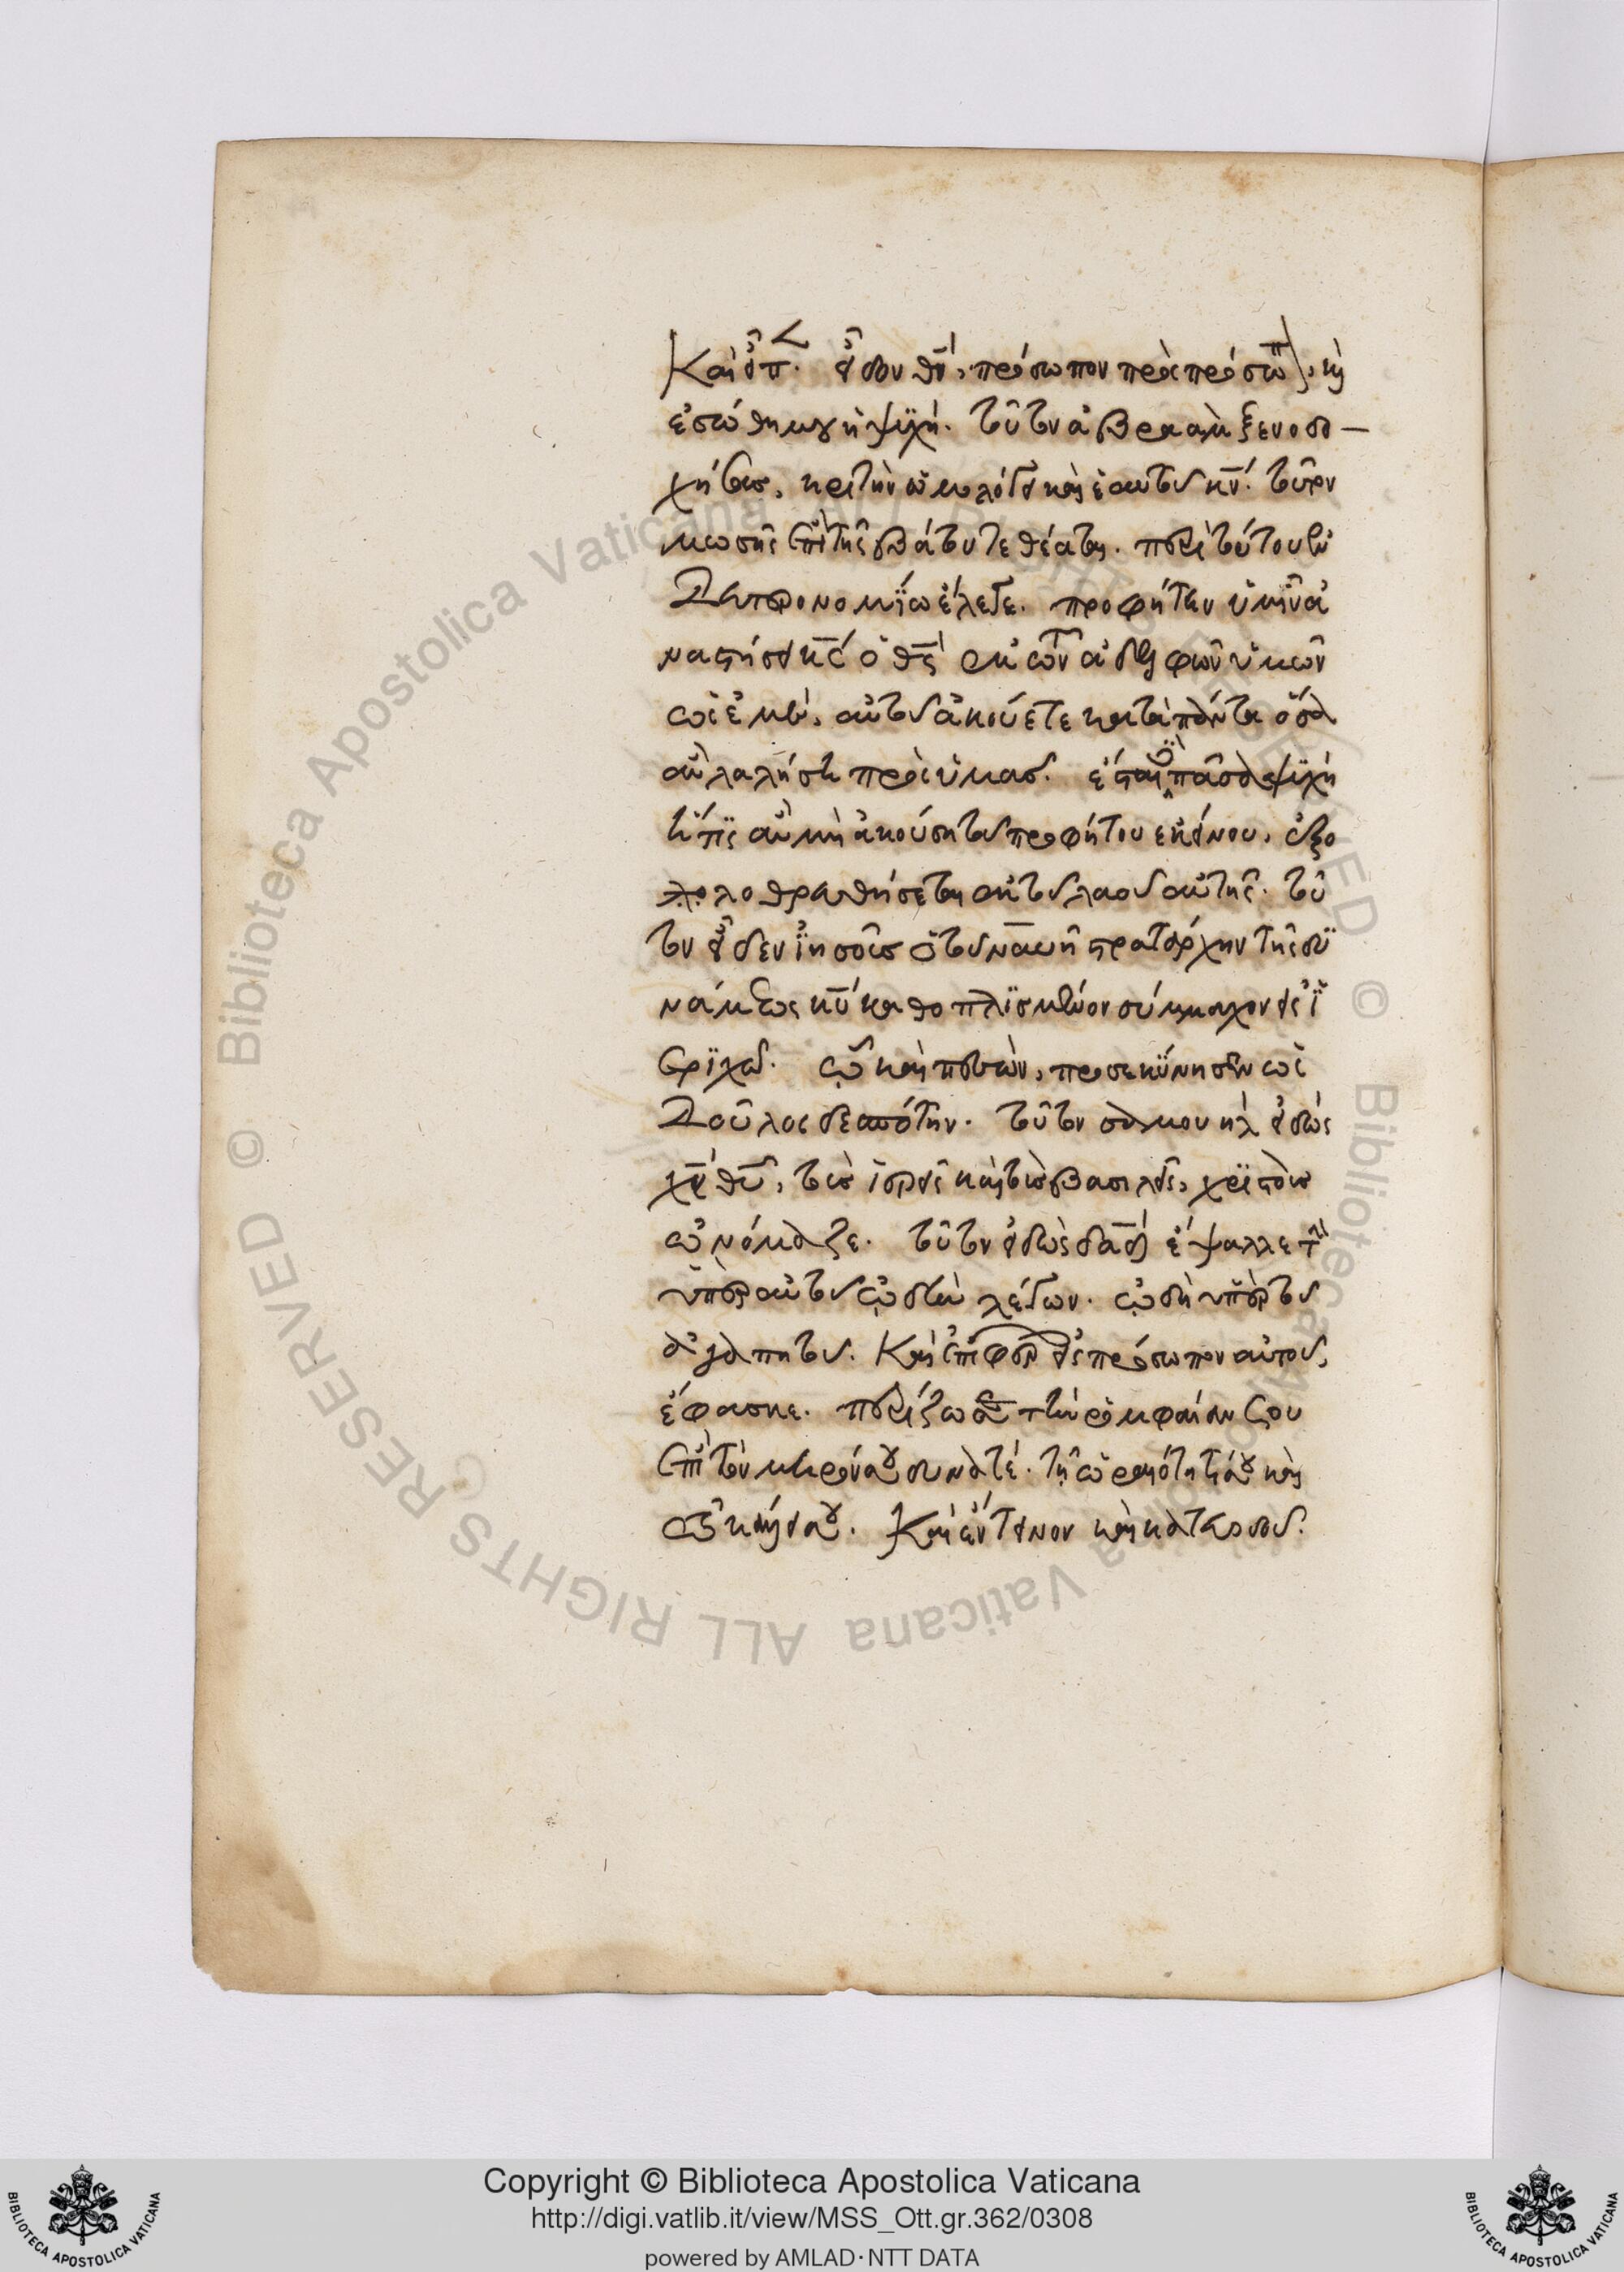 Καὶ εἶπ. εἶδον θν, πρόσωπον πρὸς πρόσωπ, κὶ
ἐσώθη μου ἡ ψϋχή. τοῦτον ἀβραὰμ ξενοδο
χήσας, κριτὴν ὡμολόγει καὶ ἑαυτοῦ κν. τοῦτον
μωσῆς ἐπὶ τῆς βάτου τεθέαται. περὶ τούτου ἐν
Δευτερονομΐω ἔλεγε. προφήτην ὑμῖν ἀ
ναστήσει κς ὁ θς ἐκ τῶν ἀδελφῶν ὑμῶν
ὡς ἐμέ, αὐτοῦ ἀκούετε κατὰ πάντα ὅσα
ἂν λαλήσῃ πρὸς ὑμας. ἔσται δὲ πᾶσα ψϋχὴ
ἥτις ἂν μὴ ἀκούσῃ τοῦ προφήτου εκείνου, ἐξο
λο λοθρευθήσεται ἐκ τοῦ λαοῦ αὐτῆς. τοῦ
τον εἶδεν ἰησοῦς ὁ τοῦ ναυῆ στρατάρχην τῆς δυ
νάμεως κυ καθοπλϊσμένον σύμμαχον εἰς ϊ
εριχώ. ὧ καὶ πεσὼν, προσεκΰνησεν ὡς
Δοῦλος δεσπότην. τοῦτον σαμουηλ εἰδὼς
χν θυ, τοὺς ἱερεῖς καὶ τοὺς βασιλεῖς, χριστοὺς
ὠνόμαζε. τοῦτον εἰδὼς δαδ ἔψαλλε τὴν
ὑπὲρ αὐτοῦ ὠδὴν λέγων. ὠδὴ ὑπὲρ τοῦ
ἀγαπητοῦ. Καὶ ἐπιφέρει εἰς πρόσωπον αὐτοῦ,
ἔφασκε. περίζωσαι τὴν ῥομφαίαν σου
ἐπὶ τὸν μηρόν σου δυνατέ. τῆ ὡραιότητί σου καὶ
τῷ κάλλει σου. Καὶ ἔντεινον καὶ κατευοδοῦ.
Copyright © Biblioteca Apostolica Vaticana
http://digi.vatlib.it/view/MSS_Ott.gr.362/0308
powered by AMLAD·NTT DATA